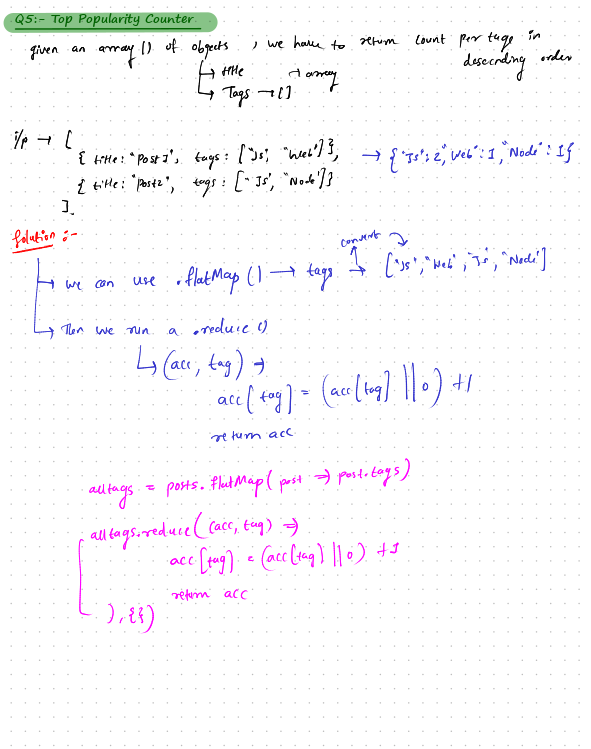 Q5:- Top Popularity Counter
given an array () of objects, we have to return count per tags in
descending order
↳ title → array
↳ Tags → []
i/p → [
{ title: "Post1", tags: ["Js", "Web"] },
{ title: "Post2", tags: ["Js", "Node"] }
]
→ { "Js": 2, "Web": 1, "Node": 1 }
Solution :-
convert
↳ we can use .flatMap () → tags → ["Js", "Web", "Js", "Node"]
↳ Then we run a .reduce ()
↳ (acc, tag) →
acc[tag] = (acc[tag] || 0) +1
return acc
alltags = posts.flatMap( post ⇒ post.tags)
alltags.reduce( (acc, tag) ⇒
acc[tag] = (acc[tag) || 0) +1
return acc
), {})